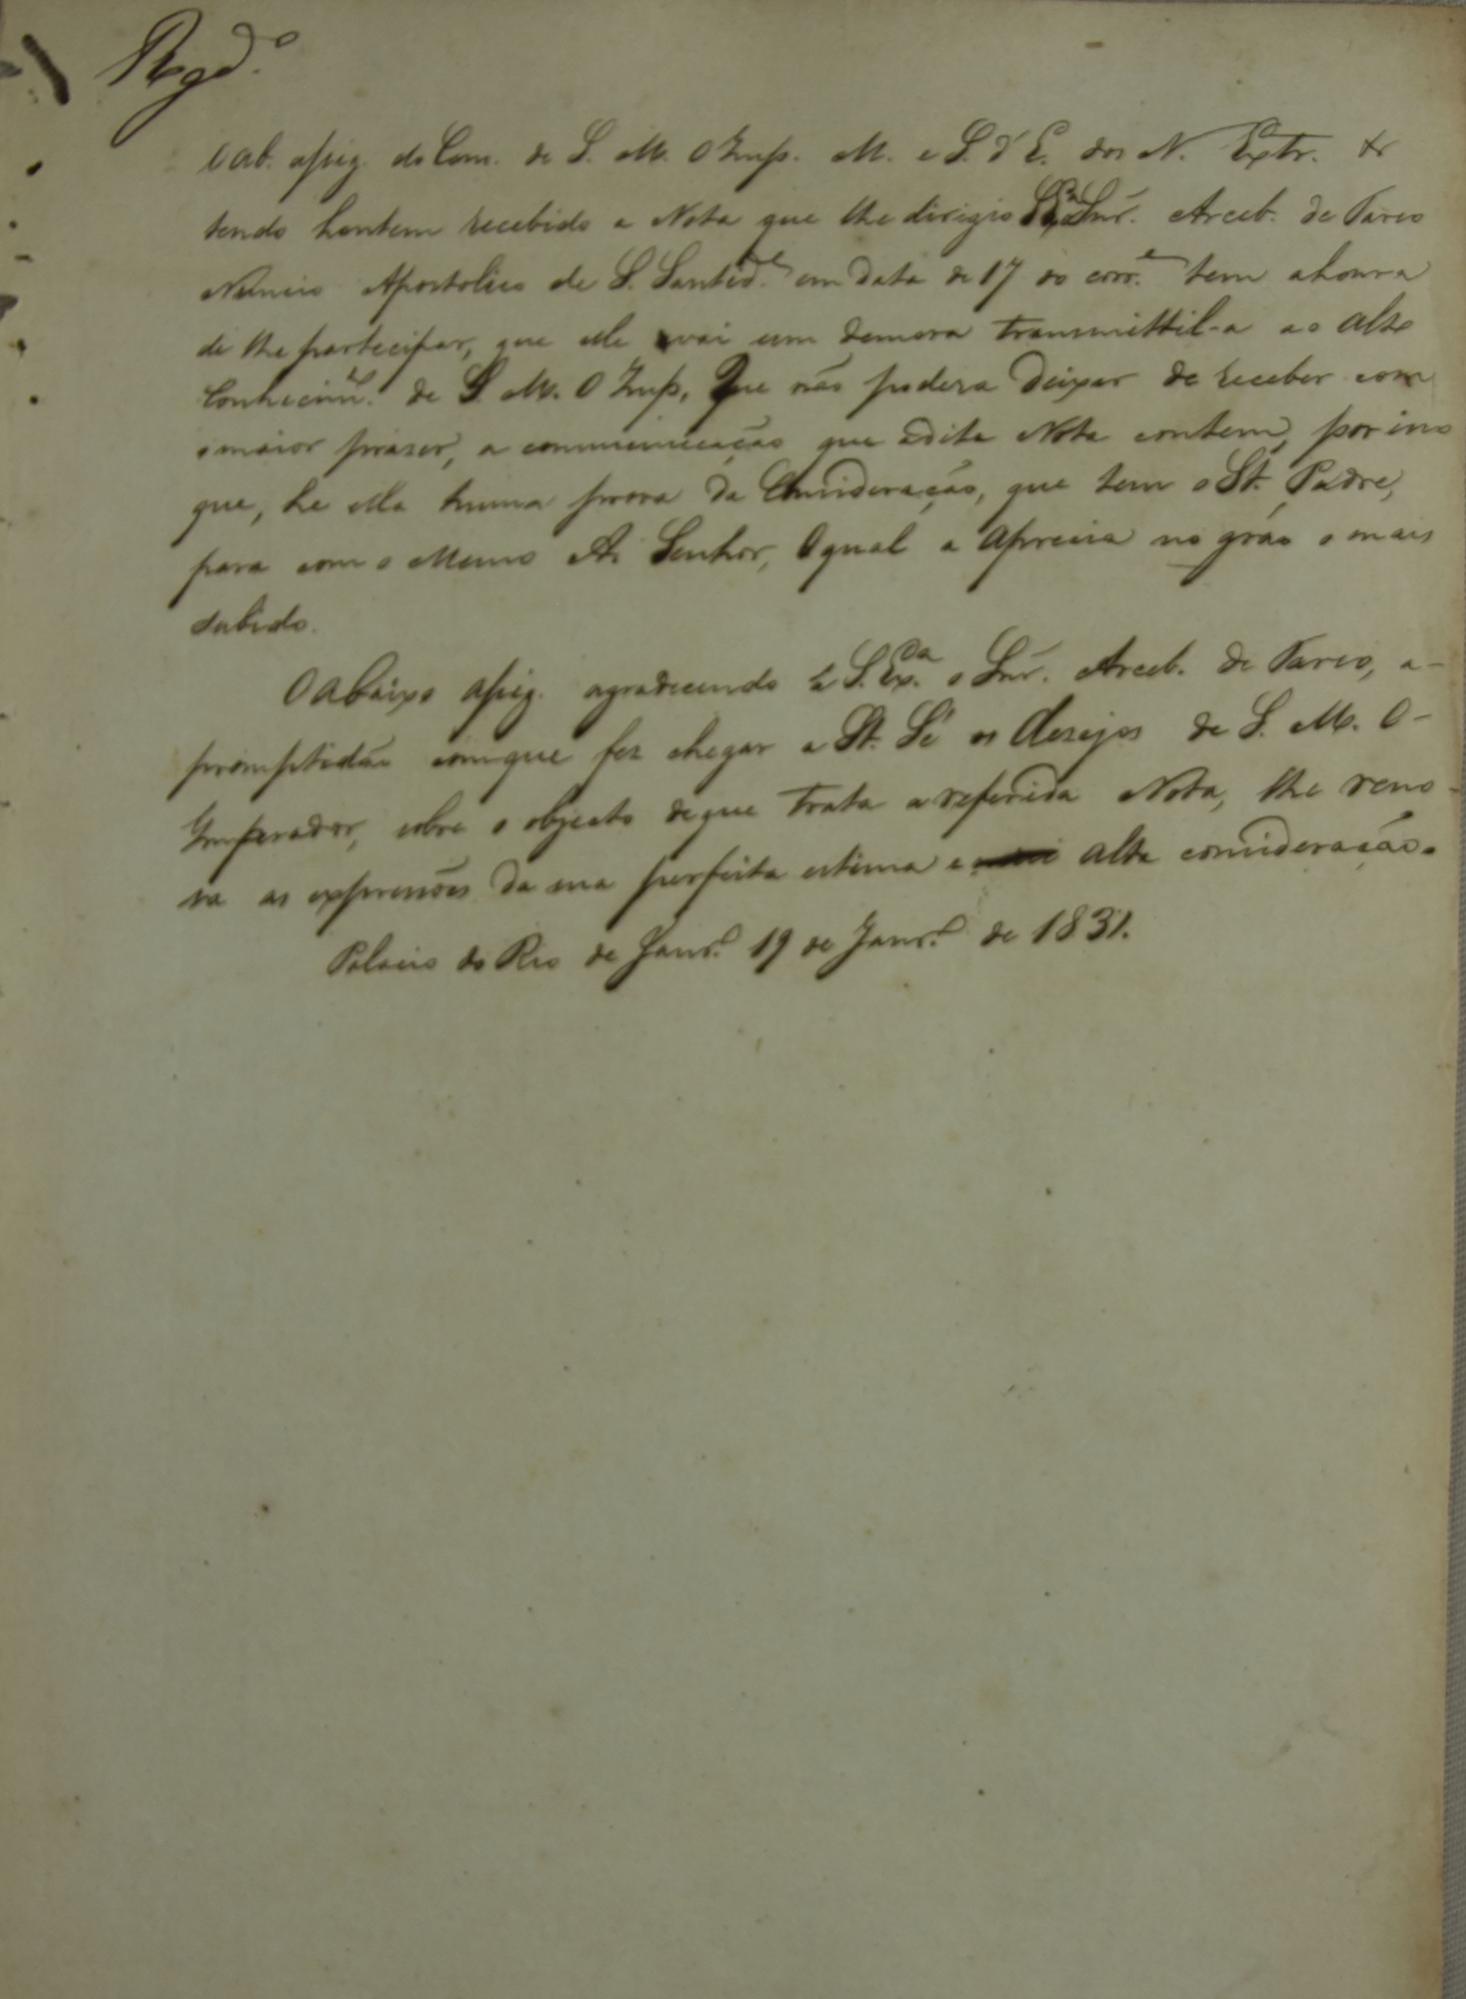 Regd.º
O ab. assig. do Com. de S. M. O Imp. M. e S. d'E. dos N. Extr. &
tendo hontem recebido a Nota que lhe dirigio S. Exª o Snr. Arceb. de Tarso
Nuncio Apostolico de S. Santid.e em data de 17 do corr.e tem a honra
de lhe partecipar, que elle vai sem demora transmittil-a ao alto
Conhecim.to de S. M. O Imp, Que não poderá deixar de receber com
o maior praser, a communicação que a dita Nota contem, por isso
que, he ella huma prova da Consideração, que tem o St. Padre,
para com o Mesmo A. Senhor, O qual a Aprecia no gráo o mais
subido.
O abaixo assig. agradecendo a S. Ex.cia o Snr. Arceb. de Tarso, a-
promptidão com que fez chegar a St. Sé os desejos de S. M. O-
Imperador, sobre o objecto de que trata a referida Nota, lhe reno-
va as expressões da sua perfeita estima e alta consideração.
Palacio do Rio de Janr.º 19 de Janr.º de 1831.